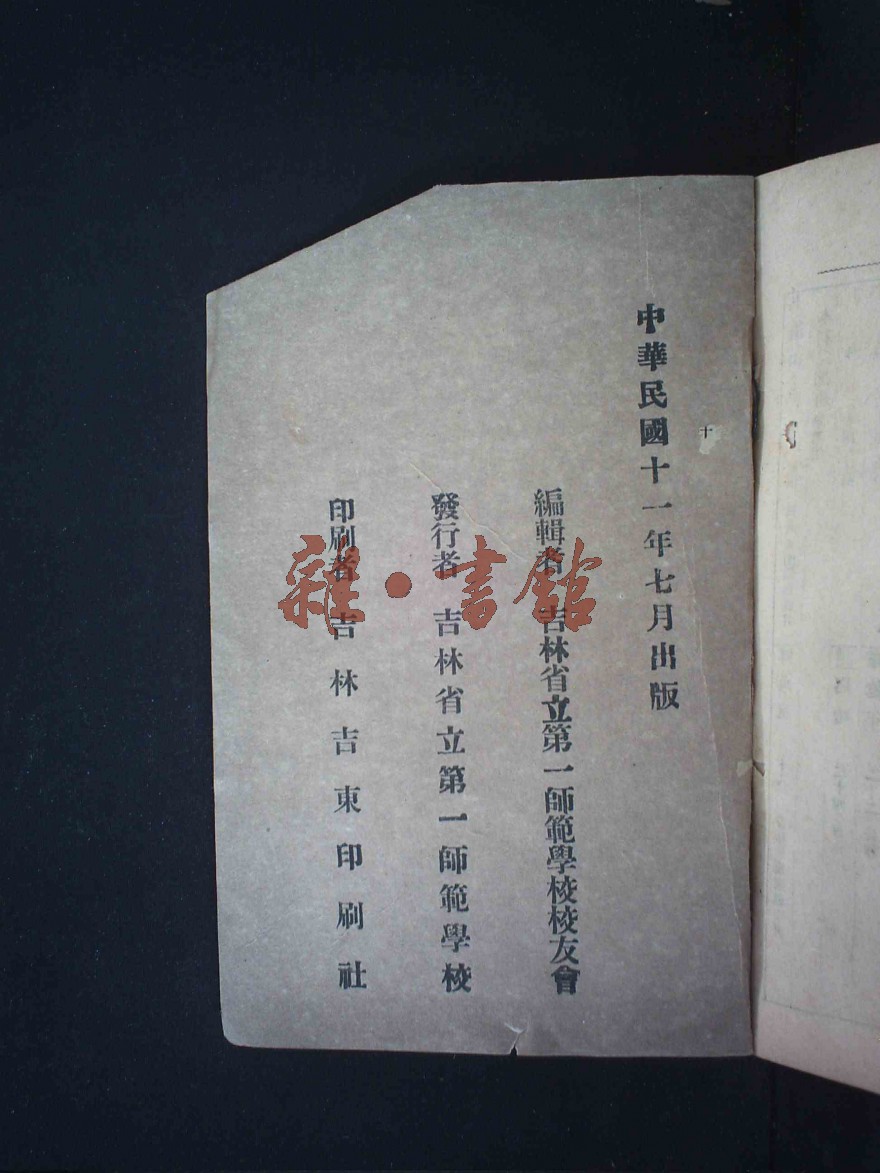 中華民國十一年七月出版
編輯者 吉林省立第一師範學校校友會
發行者 吉林省立第一師範學校
印刷者 吉林吉東印刷社
雜·書館
十